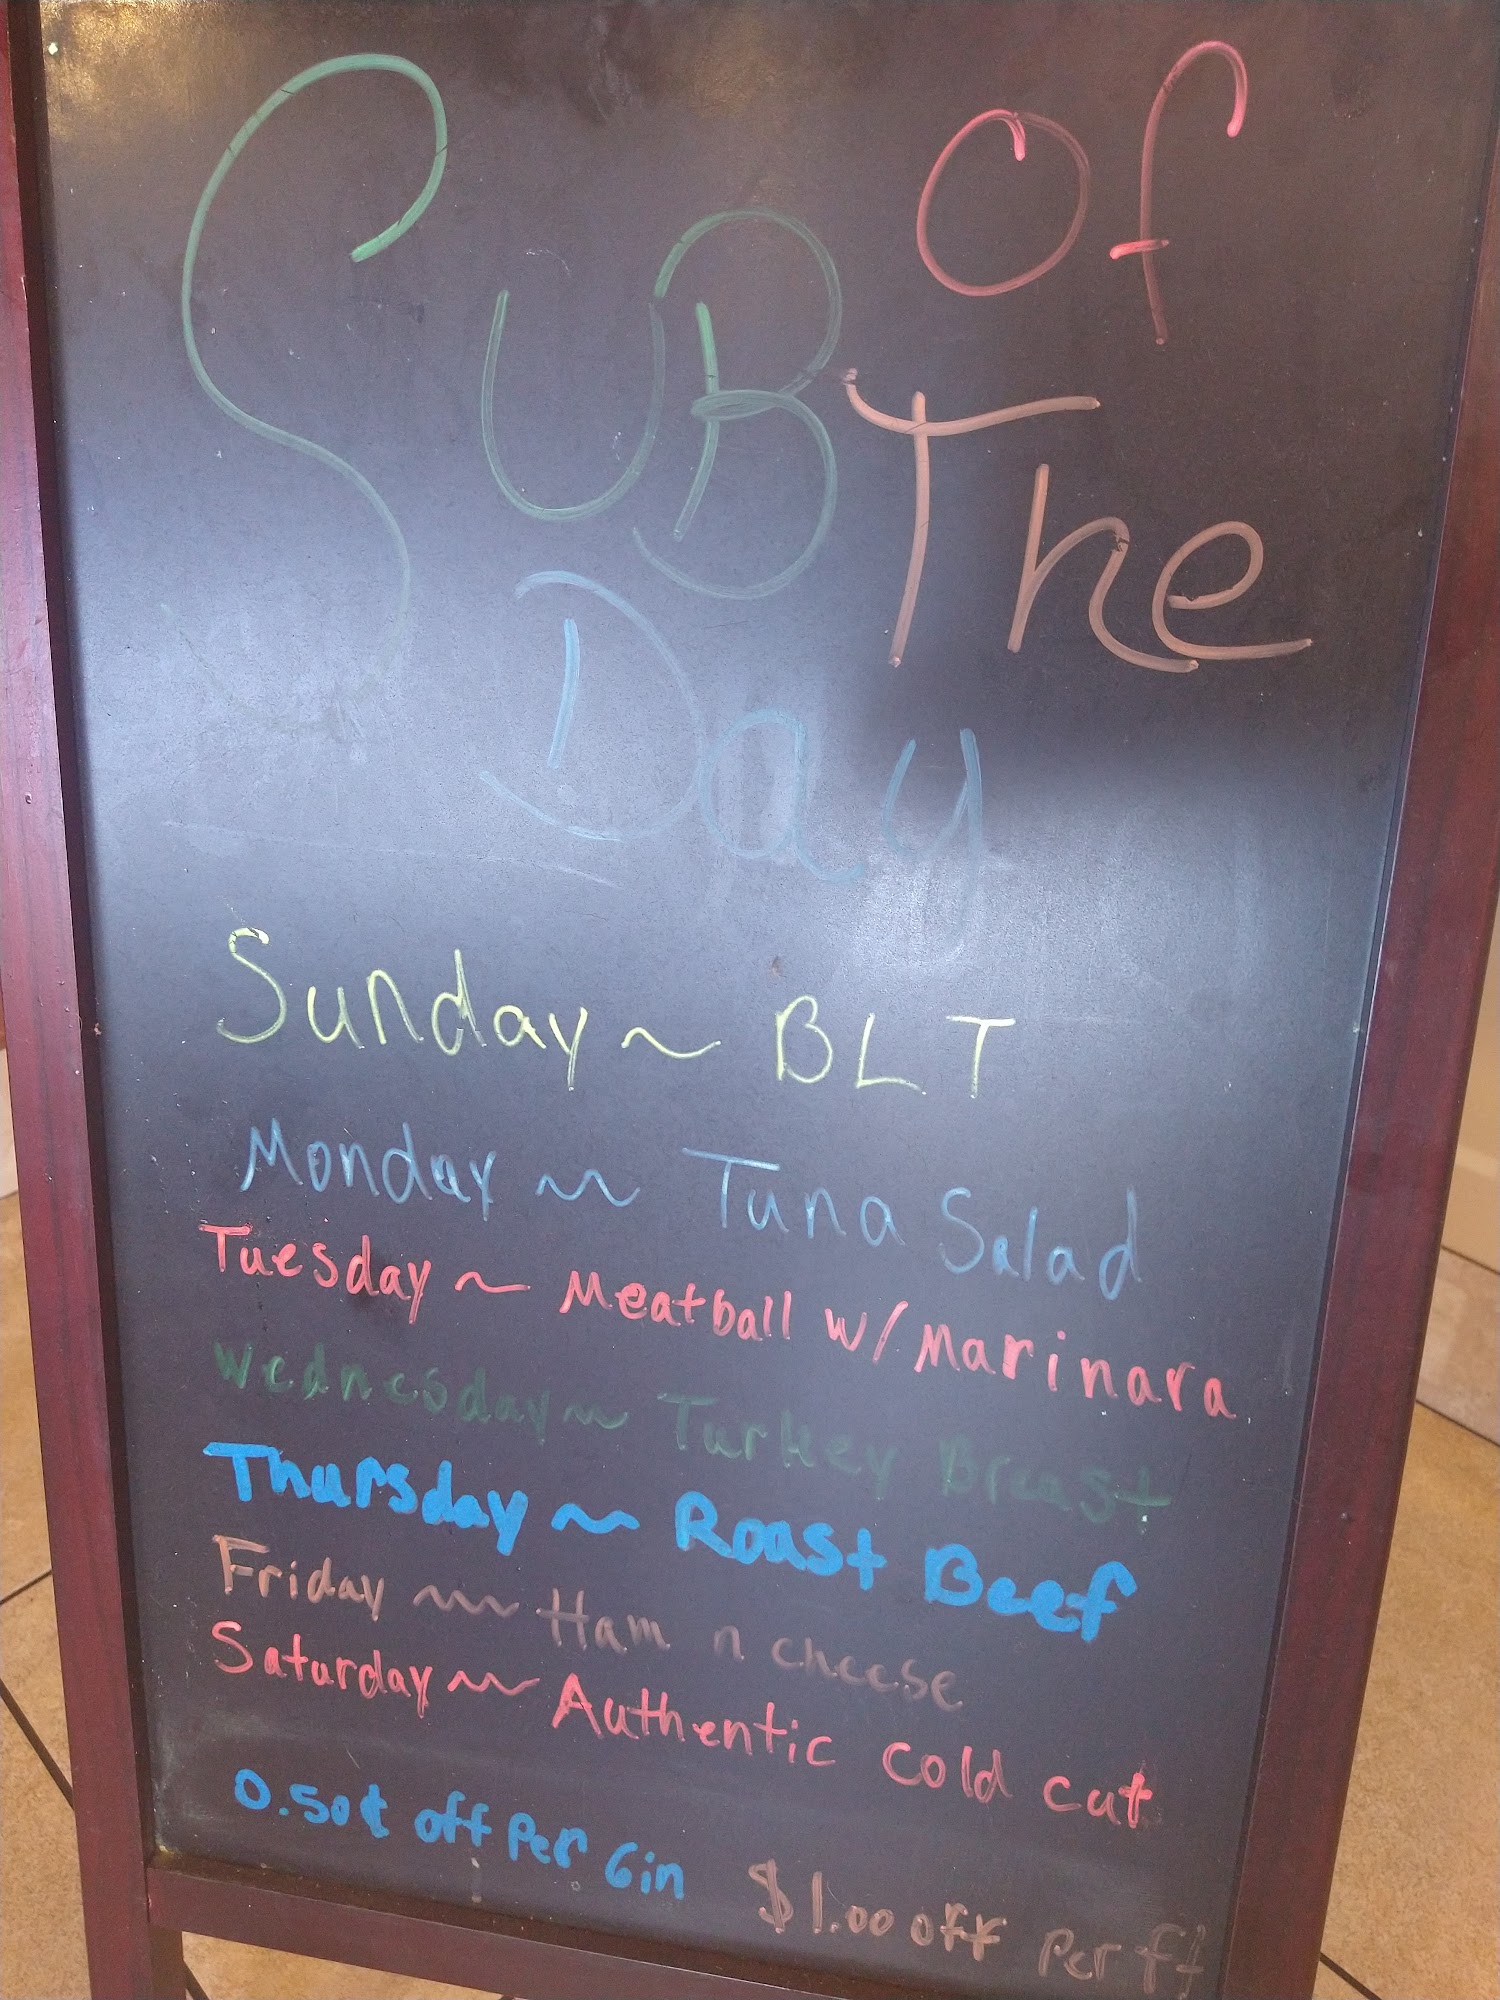 SUB Of
The
Day
Sunday ~ BLT
Monday ~ Tuna Salad
Tuesday ~ Meatball w/ Marinara
Wednesday ~ Turkey Breast
Thursday ~ Roast Beef
Friday ~ Ham n cheese
Saturday ~ Authentic cold cut
0.50¢ off Per 6in $1.00 off Per ft